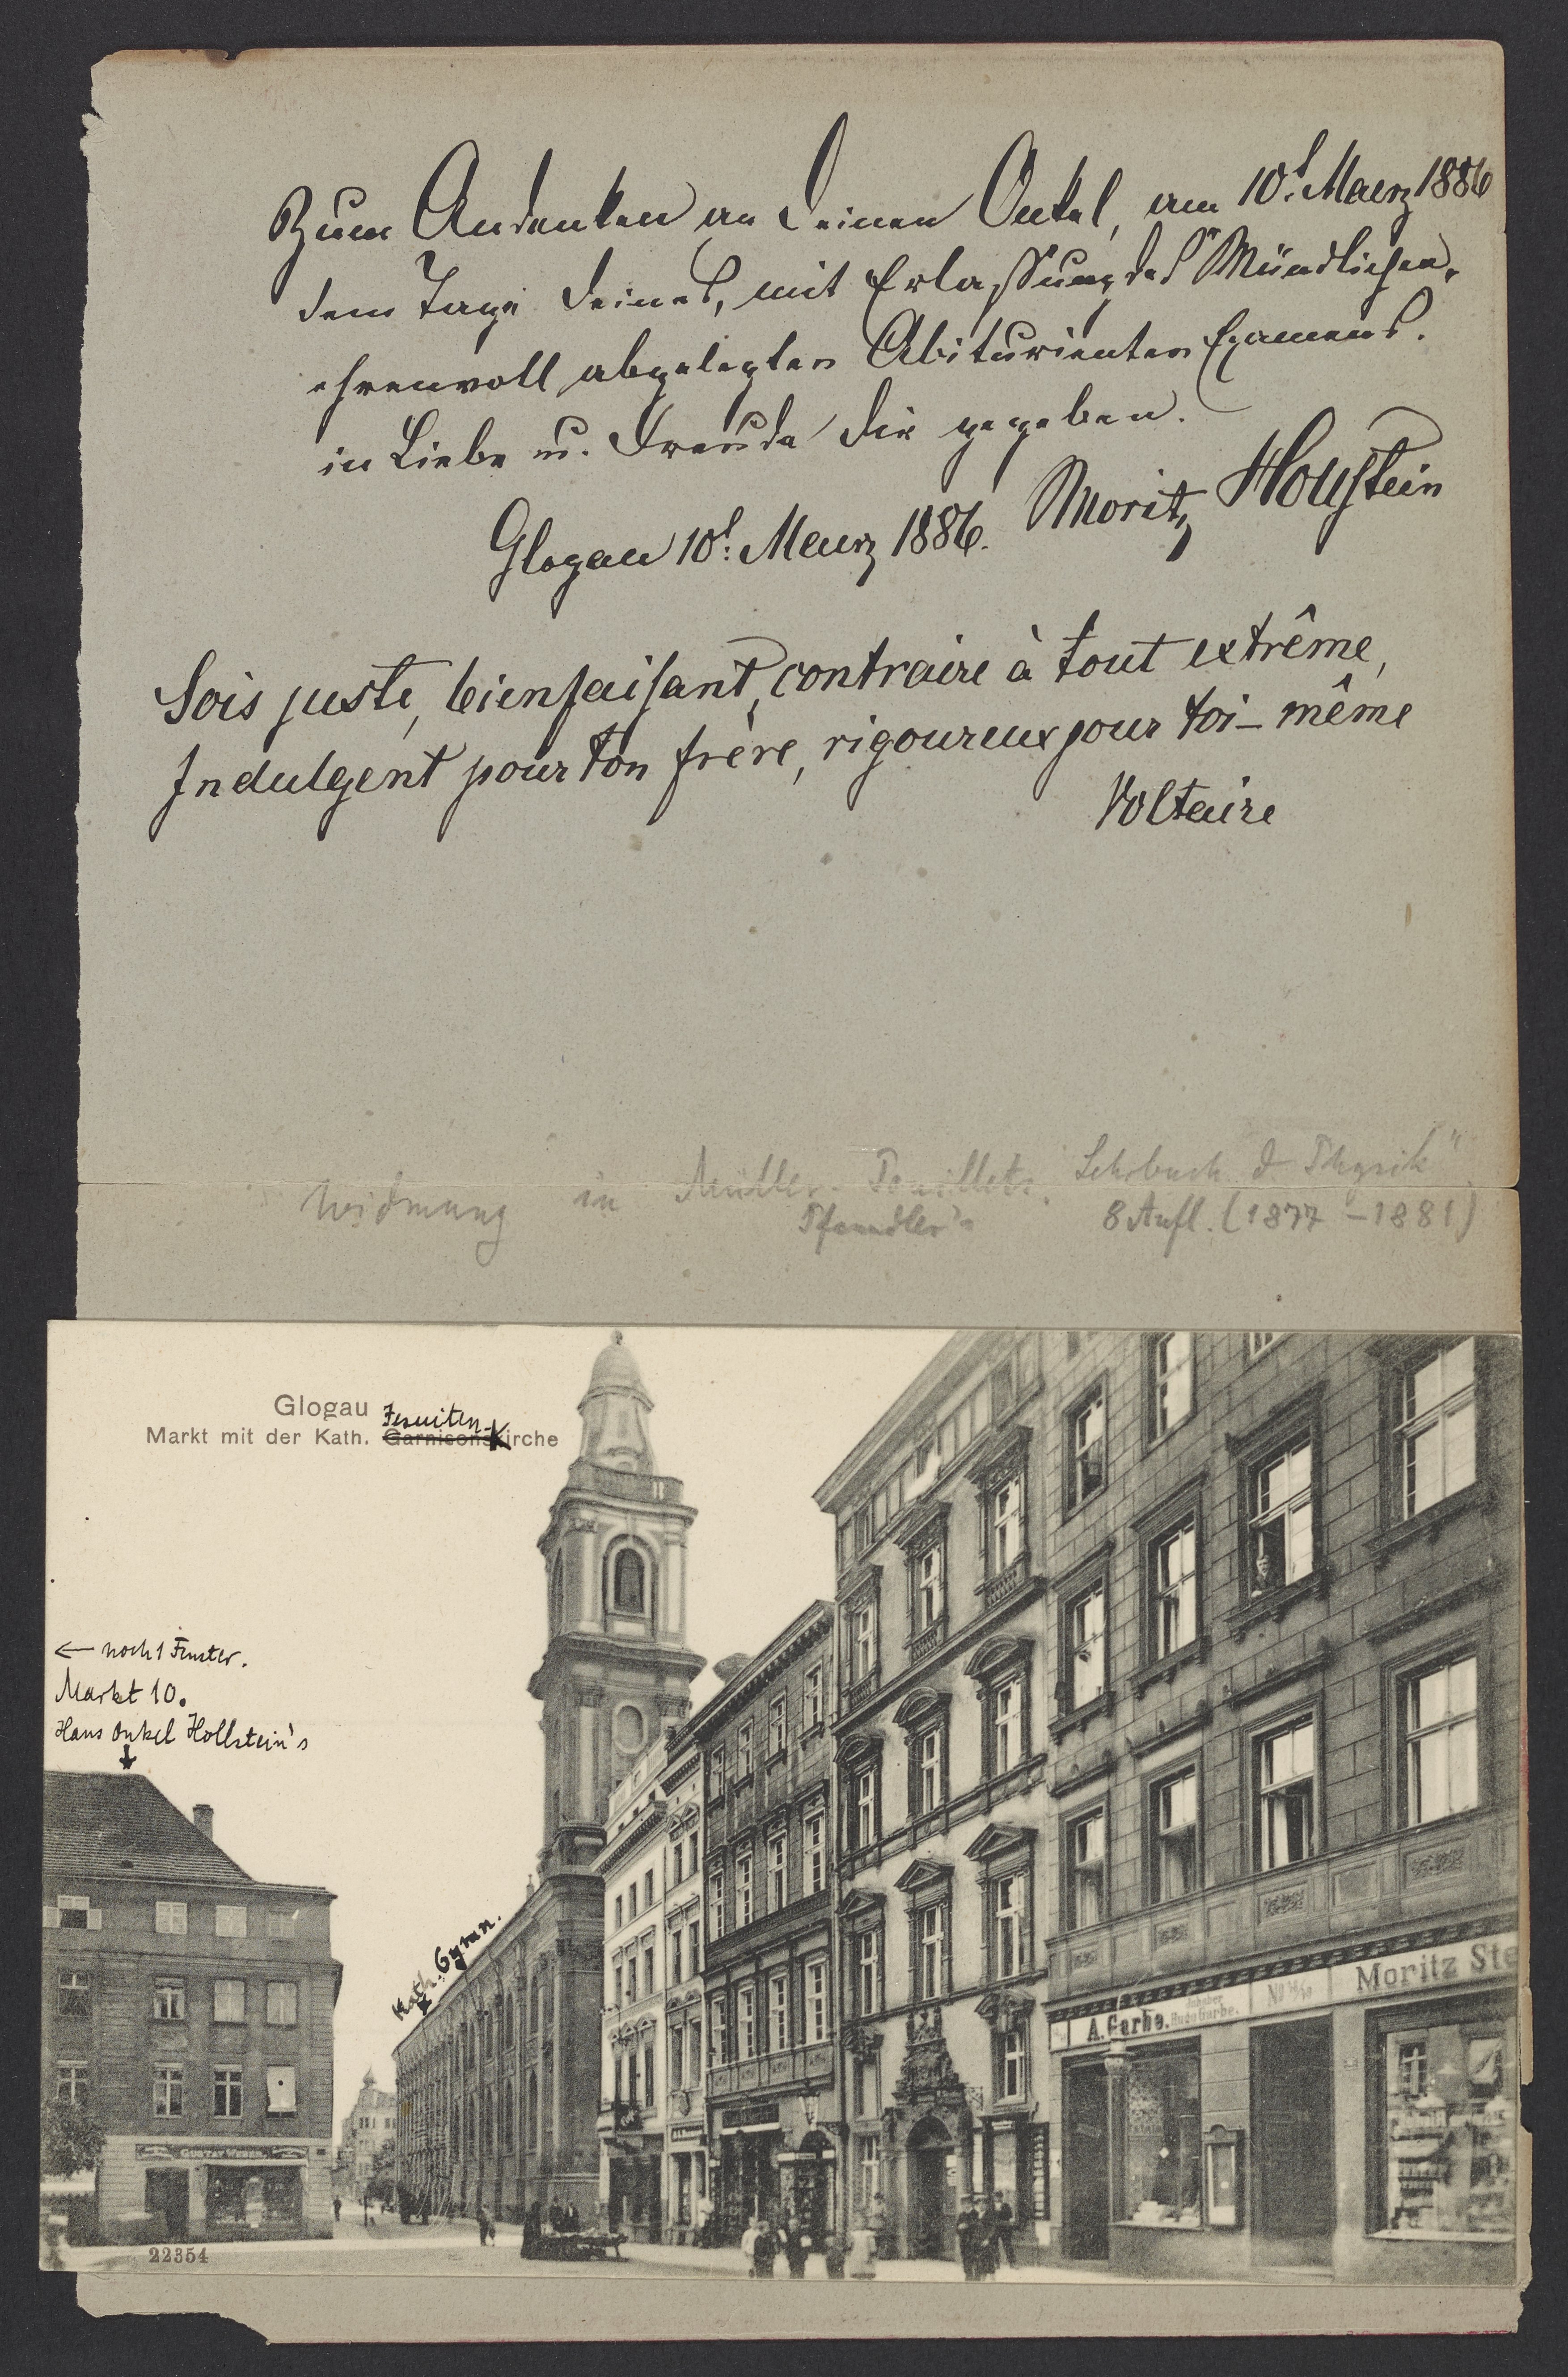 Zum Andenken an Deinen Onkel, am 10t. Maerz 1886
dem Tage Deines, mit Erlassung des Mündlichen,
ehrenvoll abgelegten Abiturienten Examens.
in Liebe u. Freude Dir gegeben.
Moritz Hollstein
Glogau 10t: Maerz 1886.
Sois juste, bienfaisant, contraire à tout extrême,
Indulgent pour ton frère, rigoureux pour toi-même
Voltaire
Widmung in Müller-Pouillets "Lehrbuch d Physik"
Pfaundler's 8 Aufl. (1877-1881)
Glogau
Jesuiten-K
Markt mit der Kath. Garnisonskirche
← noch 1 Fenster.
Markt 10.
Haus Onkel Hollstein's
Kath. Gymn.
Moritz Ste
A. Garbe.
GUSTAV WEBER.
22354